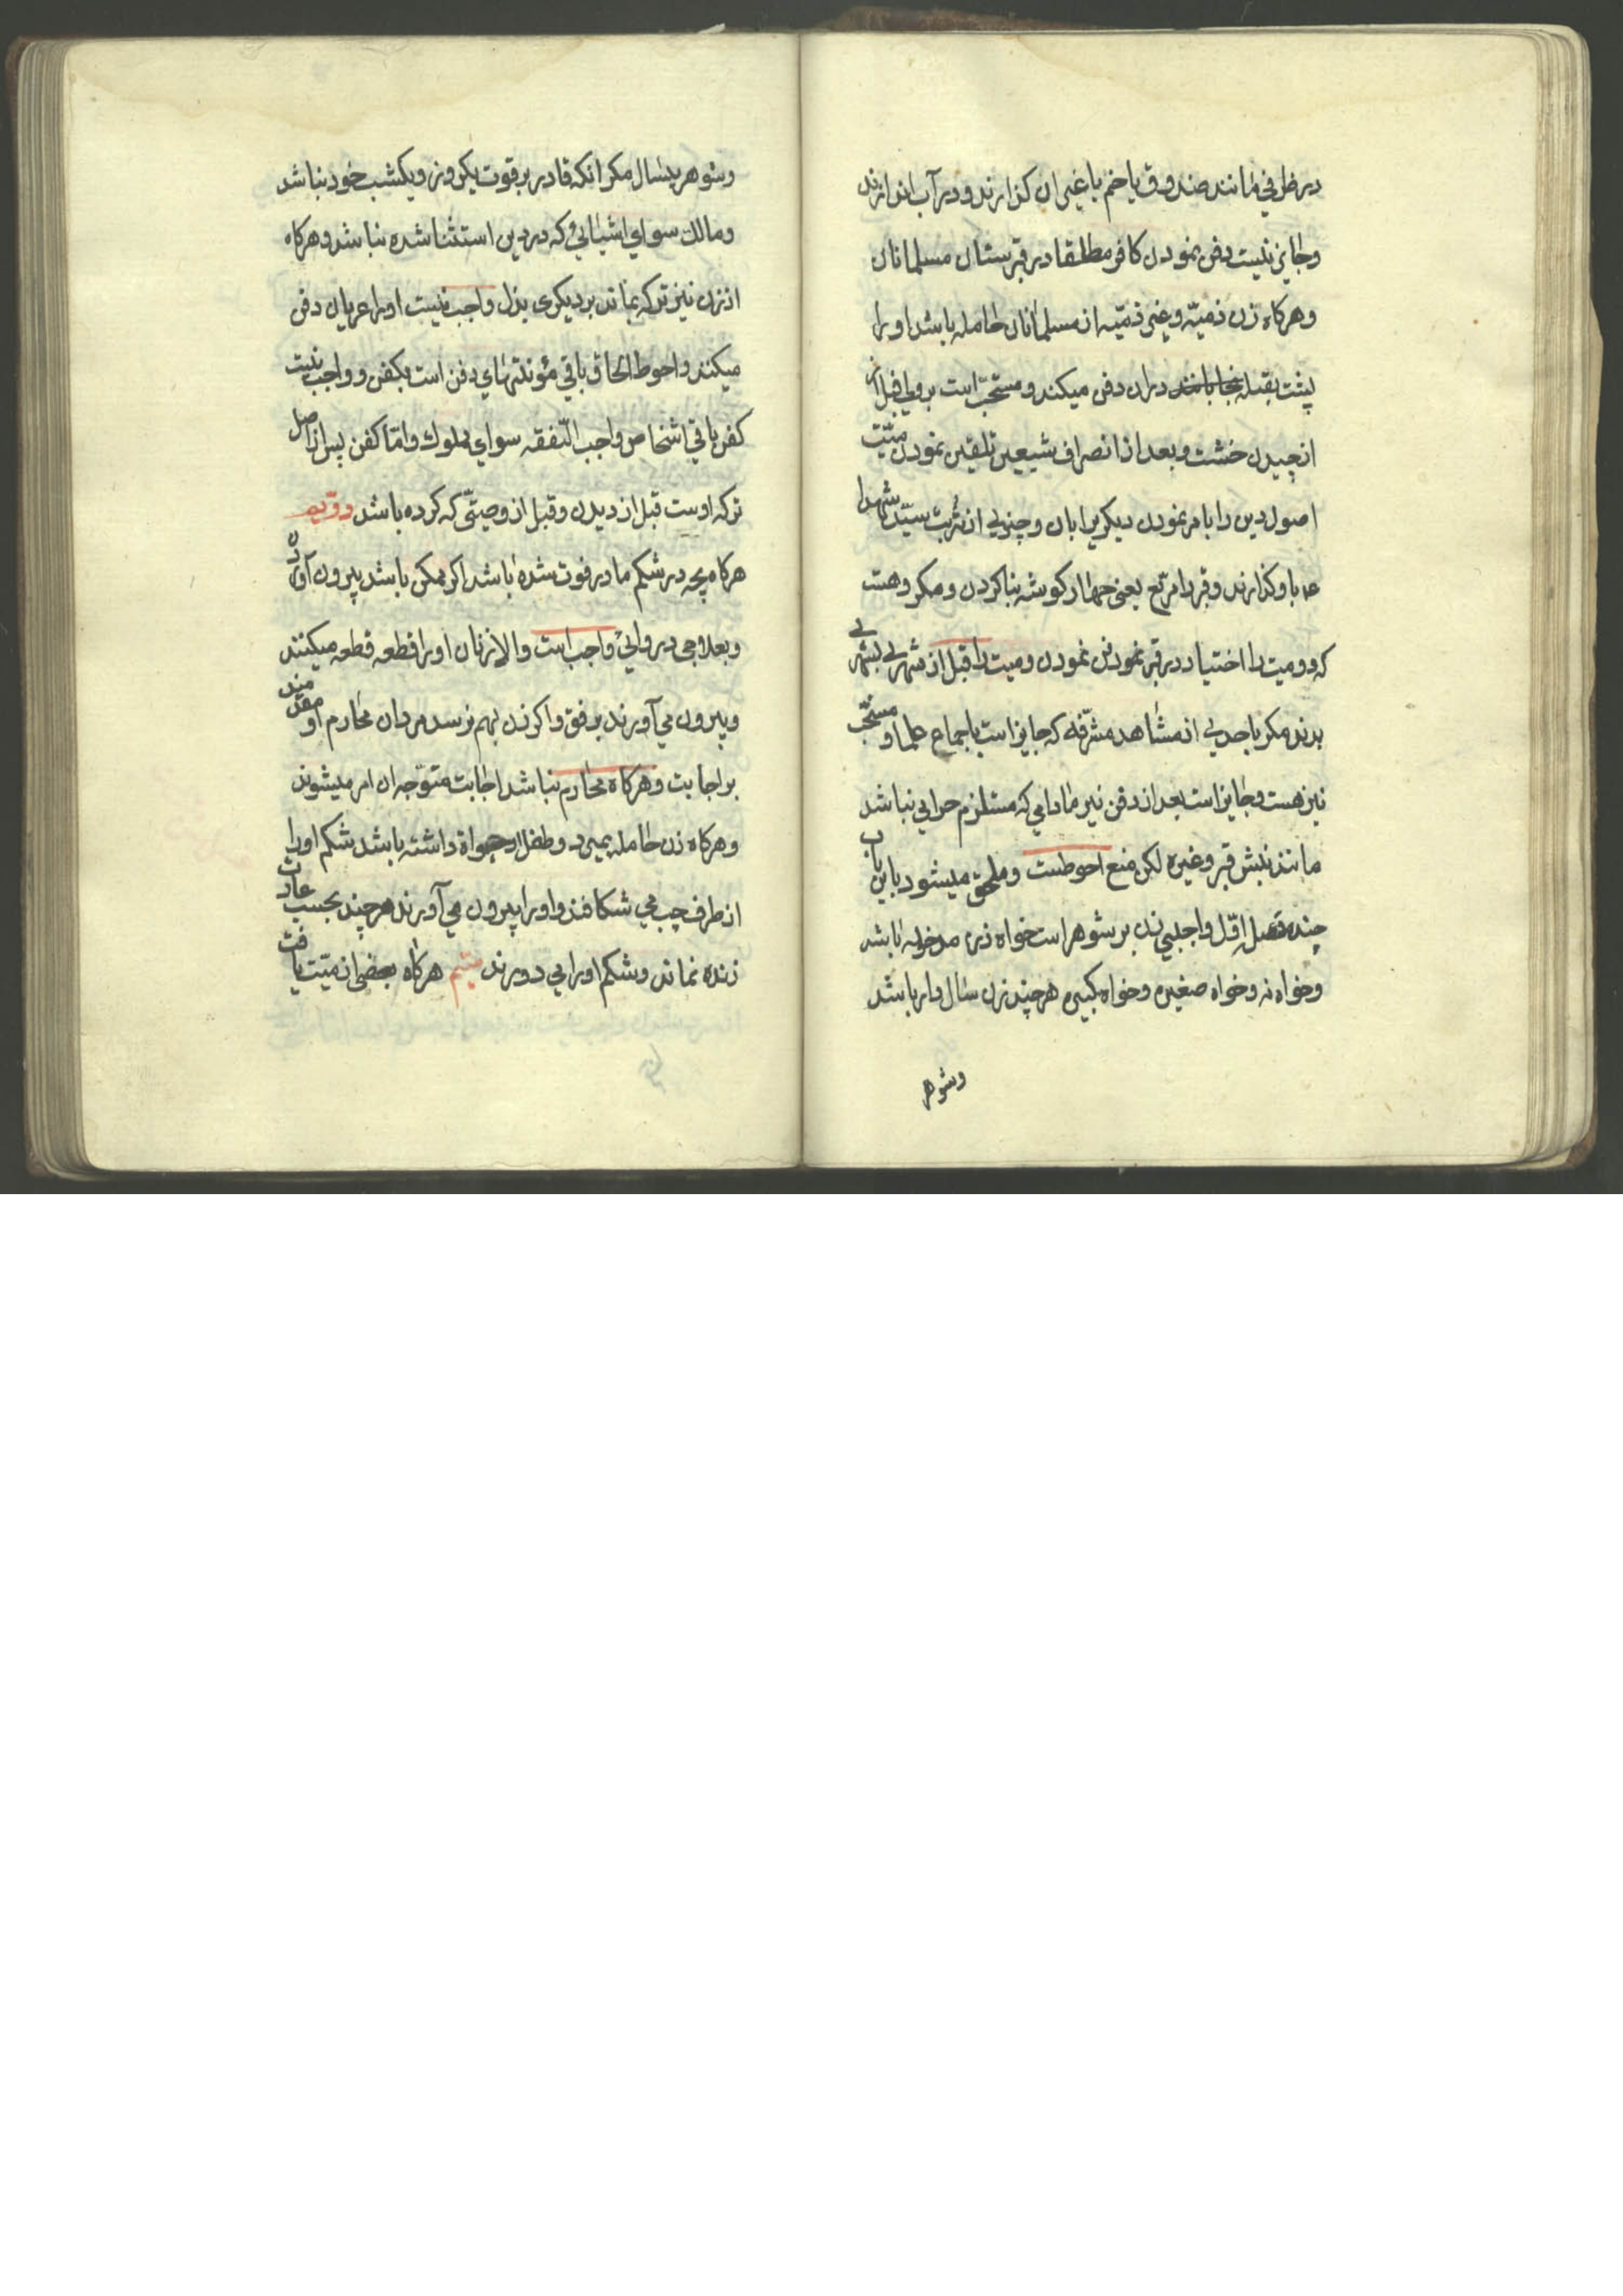 در ظرفی مانند صندوق یا خم یا غیر ان کذارند و در آب اندازند
و جایز نیست دفن نمودن کافر مطلقا در قبرستان مسلمانان
و هرکاه زن ذمیّه و غیر ذمیّه از مسلمانان حامله باشد او را
پشت بقبله در ان دفن میکنند و مستحبّ است بر ولی قبل از
انچیدن خشت و بعد از انصراف شیعین تلقین نمودن میّت
اصول دین را با مر نمودن دیکریرا بان و چیزیی از تُربت سیّد شهدا
ع با و کذارند و قبر را مربّع یعنی چهار کوشه بنا کردن و مکروهست
که دو میت را اختیار در قبر نمودن و میت را قبل از شهری بشهری
برند مکر یا حدیی از مشاهد مشرّفه که جایز است باجماع علما و مستحبّ
نیز هست و جایز است بعد از دفن نیز مادامی که مستلزم حرامی نباشد
مانند نبش قبر و غیره لکن منع احوطست و ملحق میشود باین باب
چند فصل اوّل واجبی زن بر شوهر است خواه زن مدخوله باشد
و خواه نه و خواه صغیره و خواه کبیره هرچند زن مال دار باشد
وشوهر
وشوهر بیمال مکر انکه قادر بر قوت یکروز و یکشب خود نباشد
و مالک سوای اشیایی که در دین استثنا شده نباشد و هرکاه
از زن نیز ترکه نماند بر دیکری بذل واجب نیست او را عریان دفن
میکنند و احوط الحاق باقی مؤنتهای دفن است بکفن و واجب نیست
کفن باقی اشخاص واجب النّفقه سوای مملوک و امّا کفن پس از اصل
ترکه اوست قبل از دیدن و قبل از وصیّتی که کرده باشد دوّیم
هرکاه بچه در شکم مادر فوت شده باشد اکر ممکن باشد بیرون آوردن
و بعلاجی دوایی واجب است والا زنان او را قطعه قطعه میکنند
و بیرون می آورند برفق و اکر زن بهم نرسد مردان محارم او مقدمند
بر اجابت و هرکاه محارم نباشد اجابت متوّجه ان امر میشوند
و هرکاه زن حامله بمیرد و طفل او حیواة داشته باشد شکم او را
از طرف چپ می شکافند و او را بیرون می آورند هرچند بحسب عادت
زنده نماند و شکم او را می دوزند سیّم هرکاه بعضی از میّت یافت